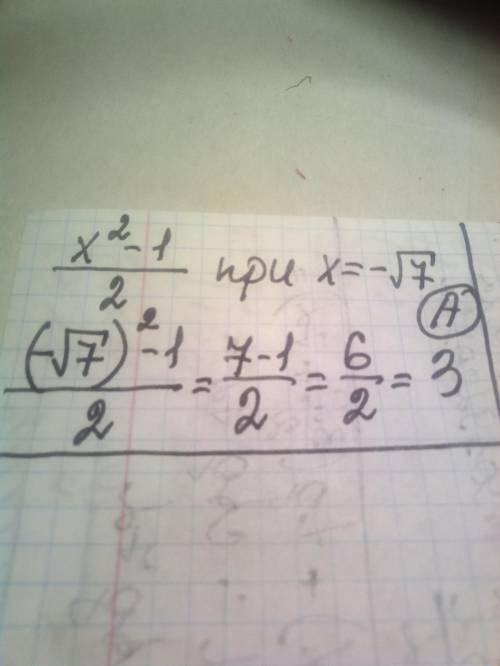 x² - 1 / 2 при x = -√7
А
(-√7)² - 1 / 2 = 7 - 1 / 2 = 6 / 2 = 3